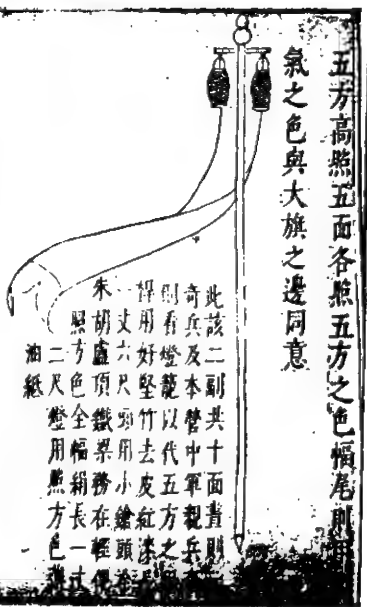 五方高照五面各照五方之色幅尾則用
氣之色與大旗之邊同意
此該二副共十面晝則
奇兵及本營中軍親兵
則看燈籠以代五方之
桿用好堅竹去皮紅漆
一丈六尺頭用小鎗頭
朱胡盧頂鐵梁務在輕
照方色全幅絹長一丈
二尺燈用照方色
油紙